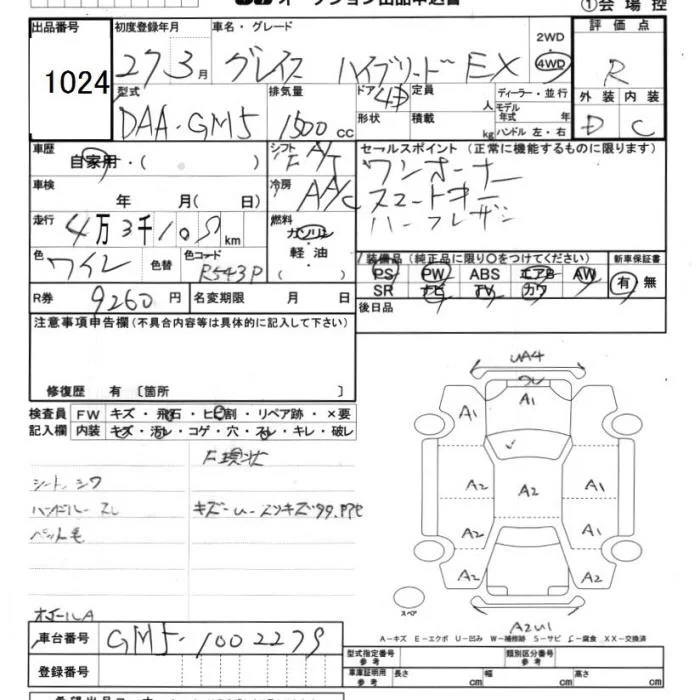 ①会場控
出品番号 初度登録年月 車名・グレード 2WD 評価点
1024 27 3月 グレイス ハイブリード EX 4WD R
型式 排気量 ドア 4D 定員 人 ディーラー・並行 外装 内装
DAA-GM5 1500 cc 形状 積載 kg モデル年式 年 ハンドル 左・右 D C
車歴 自家用・( ) シフト F A/T セールスポイント(正常に機能するものに限ります)
車検 年 月( 日) 冷房 AA/C ワンオーナー
スマートキー
ハーフレザー
走行 4万3千109km 燃料 ガソリン 軽油 ( )
色 ワイン 色替 色コード R543P 装備品(純正品に限り○をつけてください) 新車保証書
PS PW ABS エアB AW 有 無
SR ナビ TV カワ
R券 9260円 名変期限 月 日 後日品
注意事項申告欄(不具合内容等は具体的に記入して下さい)
修復歴 有 〔箇所 〕
検査員 FW キズ・飛石・ヒビ割・リペア跡・×要
記入欄 内装 キズ・汚レ・コゲ・穴・スレ・キレ・破レ
現状
シート シワ
ハンドル スレ
ペット毛
UA4
A1
A1 A1
A2 A2 A1
A2 A1
A2 A2
A2U1
スペア
A-キズ E-エクボ U-凹み W-補修跡 S-サビ C-腐食 XX-交換済
車台番号 GM5-1002279
登録番号
型式指定番号 参考 類別区分番号 参考
車庫証明用 参考 長さ cm 幅 cm 高さ cm